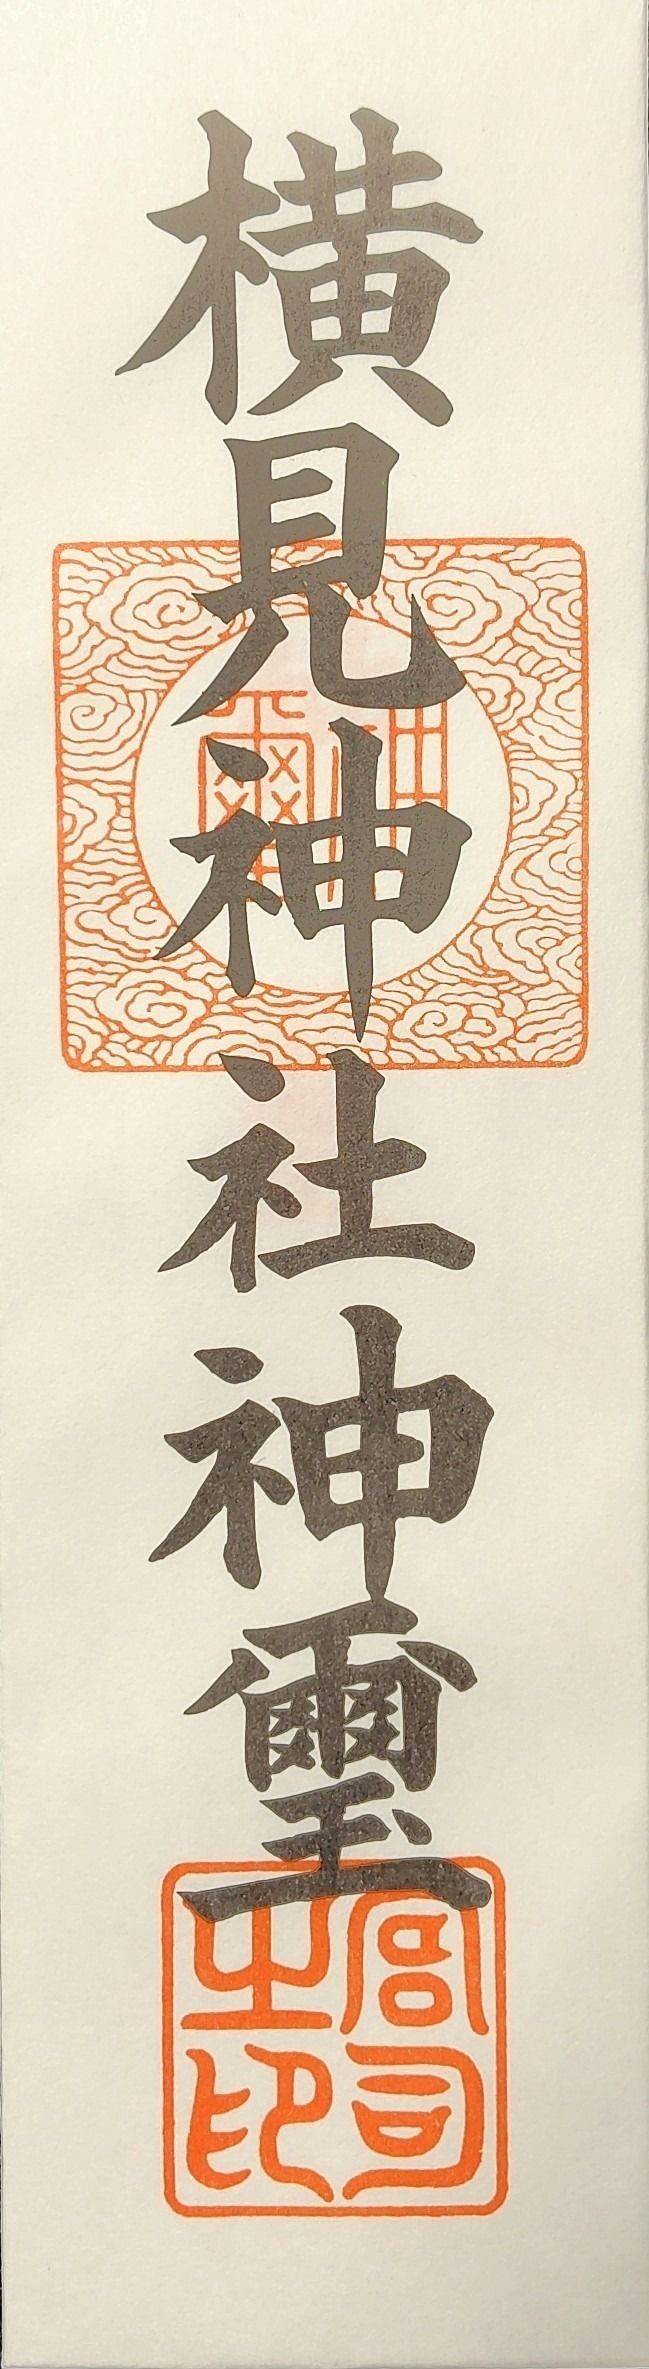 横見神社神璽
神璽
宮司之印